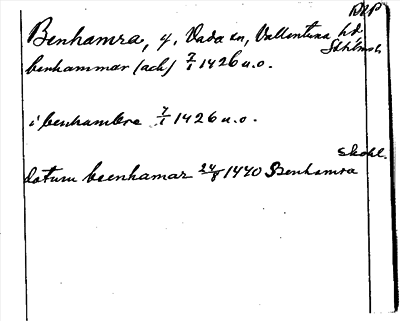 DLP
Benhamra, g, Vada sn, Vallentuna hd
Sthlms l.
benhammar (ack) 7/1 1426 u.o.
i benhambra 7/1 1426 u.o.
Skokl.
datum beenhamar 24/8 1440 Benhamra